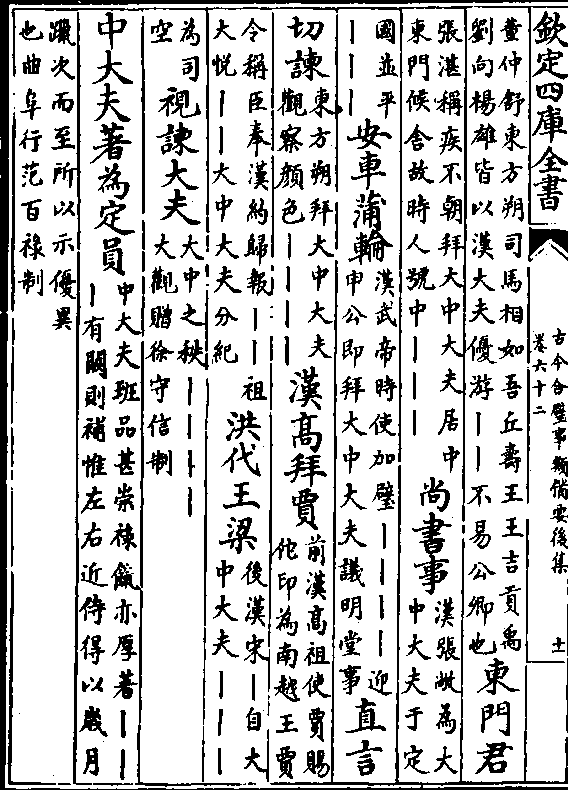 欽定四庫全書
古今合璧事類備要後集
卷六十二
十一
董仲舒東方朔司馬相如吾丘壽王王吉貢禹
劉向楊雄皆以漢大夫優游丨丨不易公卿也
東門君
張湛稱疾不朝拜大中大夫居中
東門候舍故時人號中丨丨丨
尚書事
漢張敞為大
中大夫于定
國並平
丨丨丨
安車蒲輪
漢武帝時使加璧丨丨丨丨迎
申公即拜大中大夫議明堂事
直言
切諫
東方朔拜大中大夫
觀察顔色丨丨丨丨
漢髙拜賈
前漢髙祖使賈賜
佗印為南越王賈
令稱臣奉漢約歸報丨丨祖
大悦丨丨大中大夫分紀
洪代王梁
後漢宋丨自大
中大夫丨丨丨
為司
空
視諫大夫
大中之秩丨丨丨丨
大觀贈徐守信制
中大夫著為定員
中大夫班品甚崇祿餼亦厚著丨丨
丨有闕則補惟左右近侍得以嵗月
躐次而至所以示優異
也曲阜行范百祿制